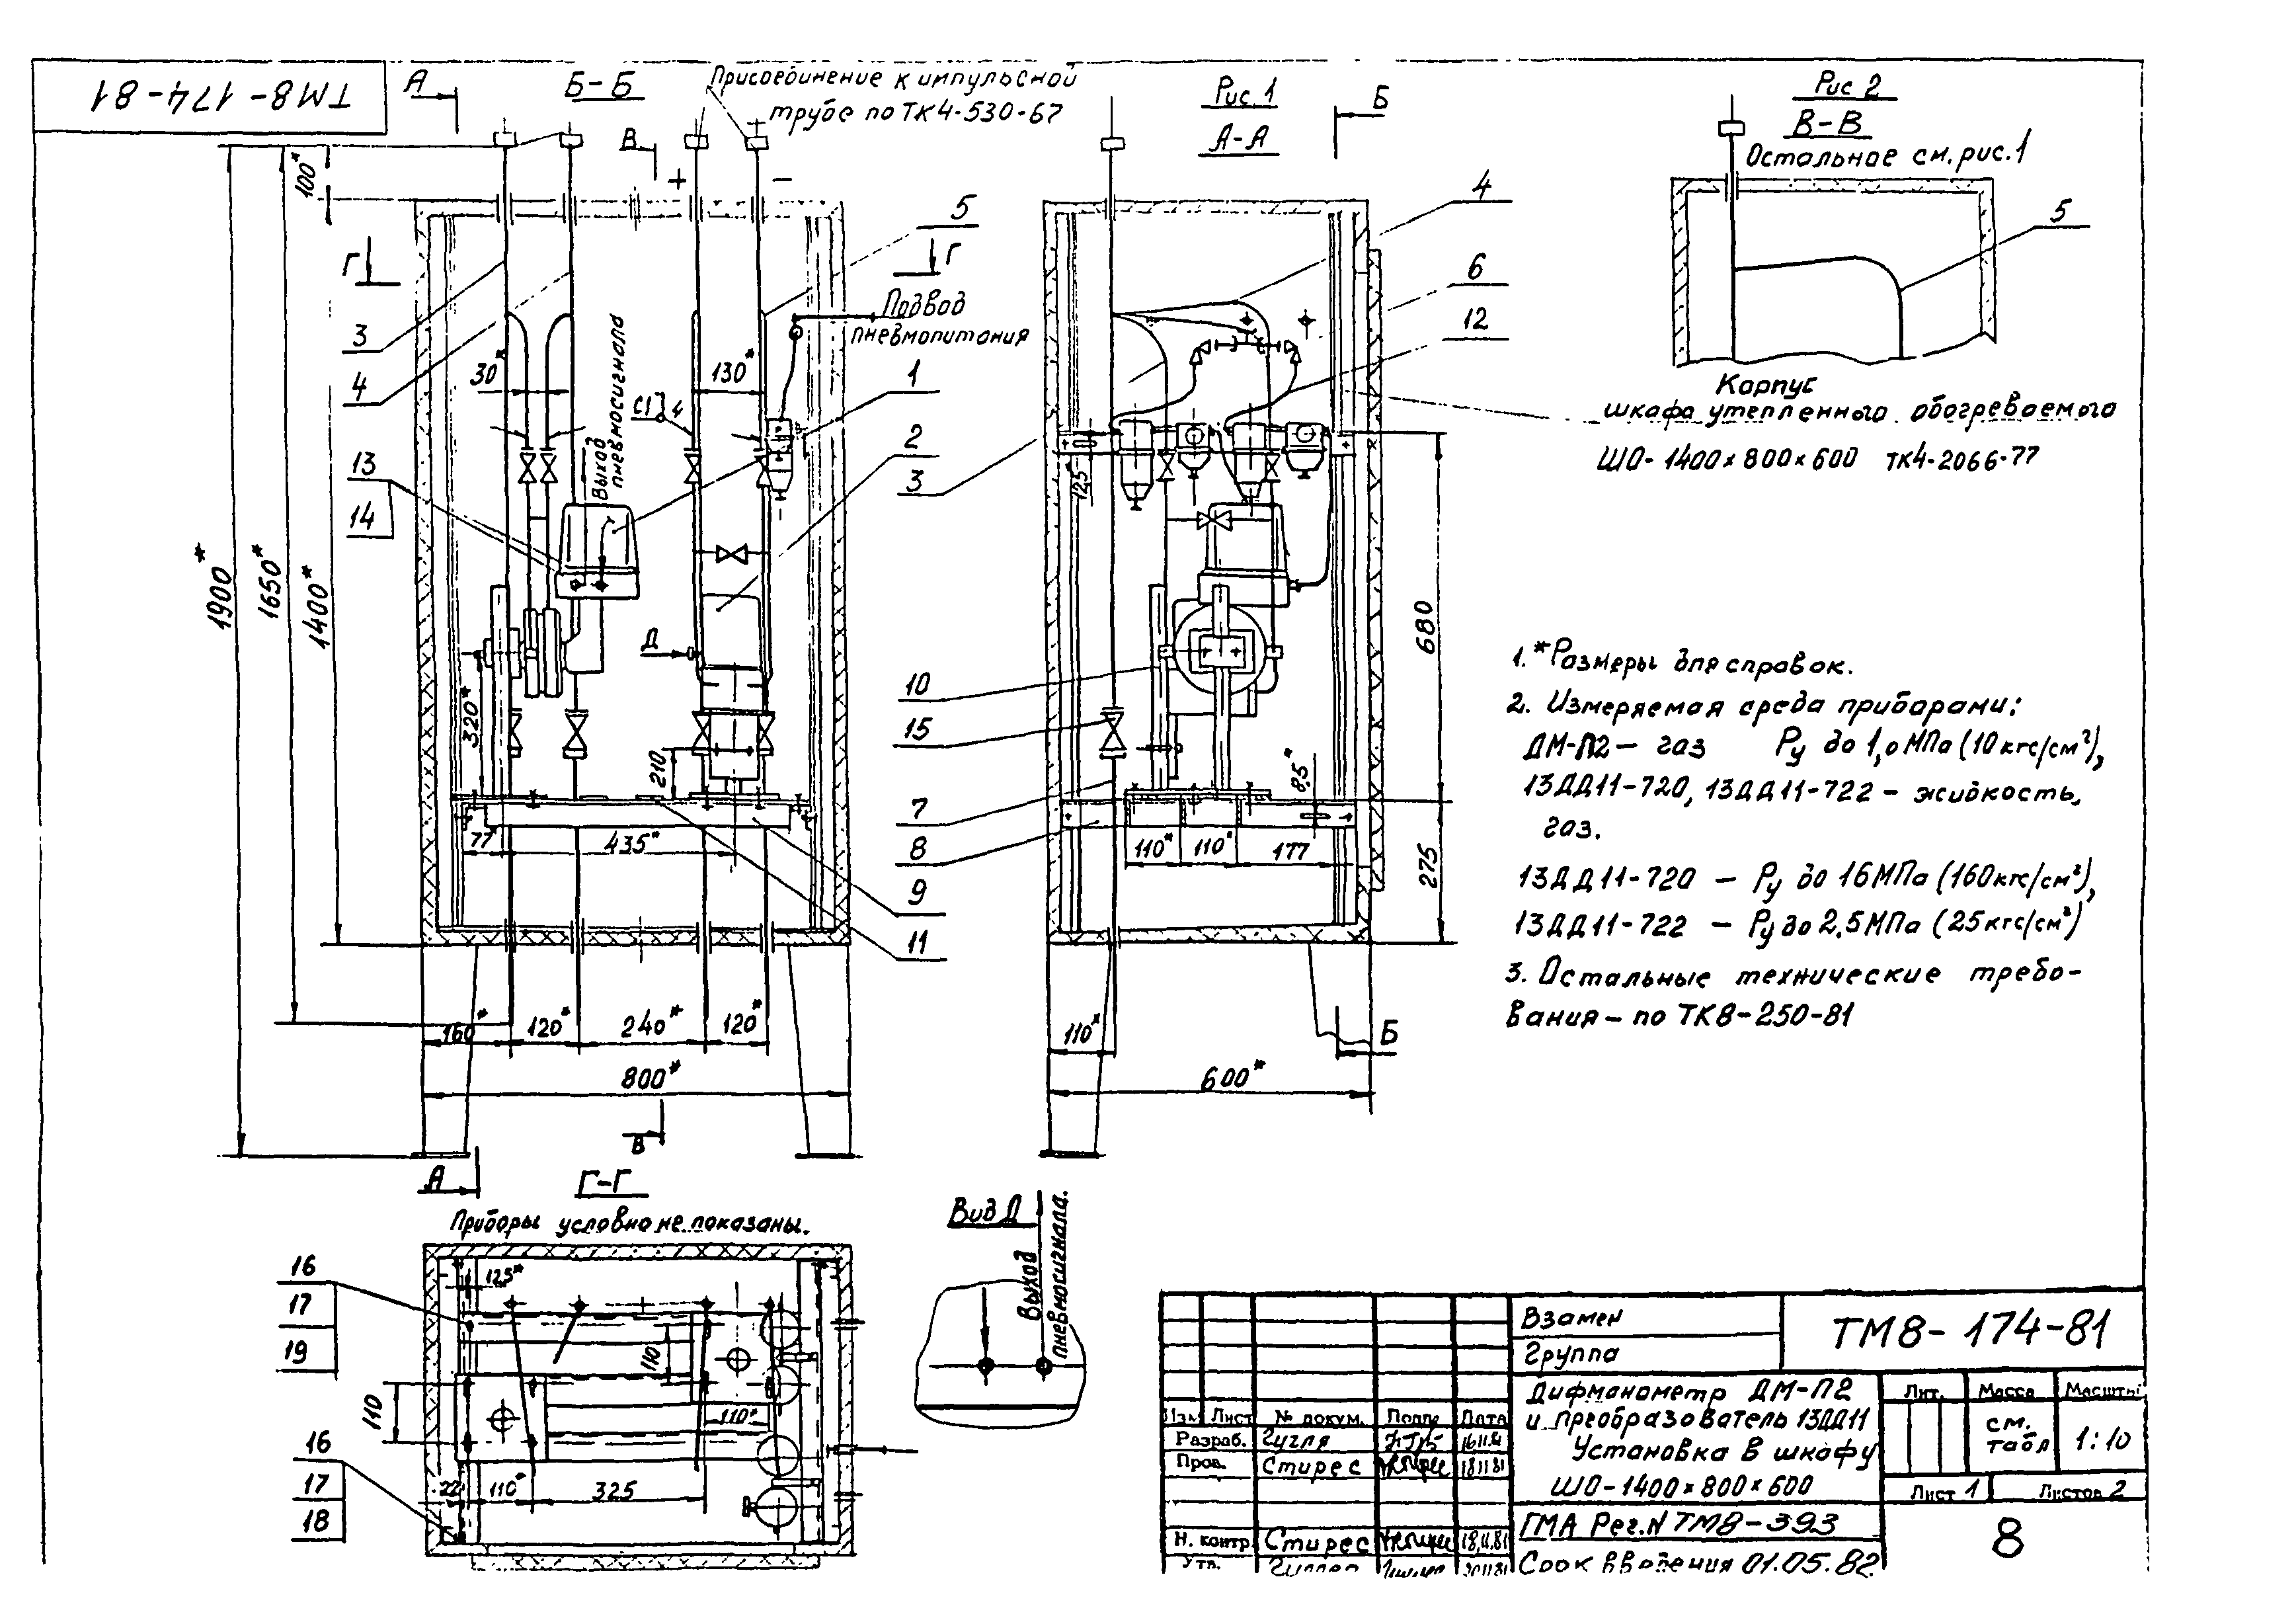 ТМ8-174-81
А
Б-Б
Присоединение к импульсной
трубе по ТК4-530-67
В
+
−
Рис. 1
А-А
Б
Рис 2
В-В
Остальное см. рис. 1
5
100*
1900*
1650*
1400*
Г
Г
5
3
4
30*
130*
Выход
пневмосигнала
Подвод
пневмопитания
1
2
13
14
Д
320*
210
77*
435*
9
11
160*
120*
240*
120*
800*
В
А
4
6
12
3
12,5*
680
10
15
7
8
8,5*
110*
110*
177
275
110*
600*
Б
Корпус
шкафа утепленного обогреваемого
ШО-1400×800×600 ТК4-2066-77
1. *Размеры для справок.
2. Измеряемая среда приборами:
ДМ-П2 — газ Ру до 1,0 МПа (10 кгс/см²),
13ДД11-720, 13ДД11-722 — жидкость,
газ.
13ДД11-720 — Ру до 16 МПа (160 кгс/см²),
13ДД11-722 — Ру до 2,5 МПа (25 кгс/см²)
3. Остальные технические требо-
вания — по ТК8-250-81
Г-Г
Приборы условно не показаны.
16
17
19
16
17
18
125*
110
110
110*
22
110*
325
Вид Д
Выход
пневмосигнала.
Взамен
Группа
ТМ8-174-81
Дифманометр ДМ-П2
и преобразователь 13ДД11
Установка в шкафу
ШО-1400×800×600
Лит. Масса Масштаб
см.
табл
1:10
Лист 1 Листов 2
Изм Лист № докум. Подп. Дата
Разраб. Гугля 16.11.81
Пров. Стирес 18.11.81
Н. контр. Стирес 18.11.81
Утв.
ГМА Рег. N ТМ8-393
Срок введения 01.05.82
8